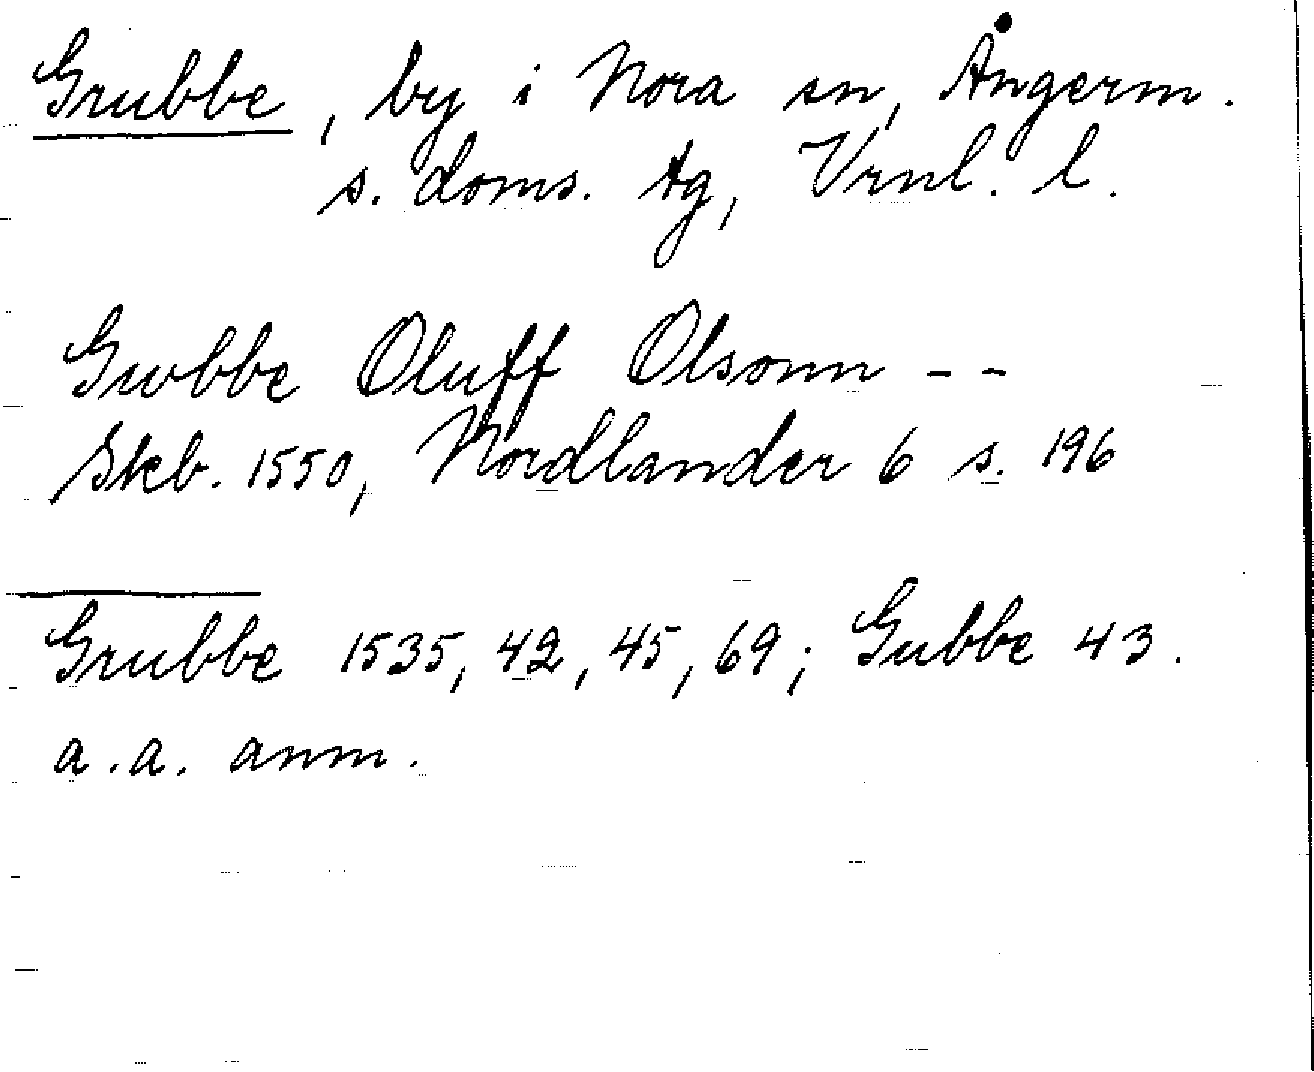 Grubbe, by i Nora sn, Ångerm.
s. doms. tg, Vrnl. l.
Gwbbe Oluff Olsonn - -
Skb. 1550, Nordlander 6 s. 196
Grubbe 1535, 42, 45, 69; Gubbe 43.
a.a. anm.